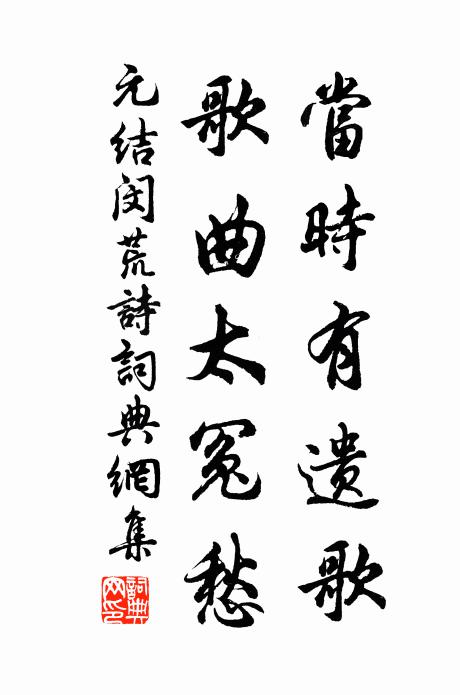 當時有遺歌
歌曲太冤愁
元結閔荒詩詞典網集
詞典網印